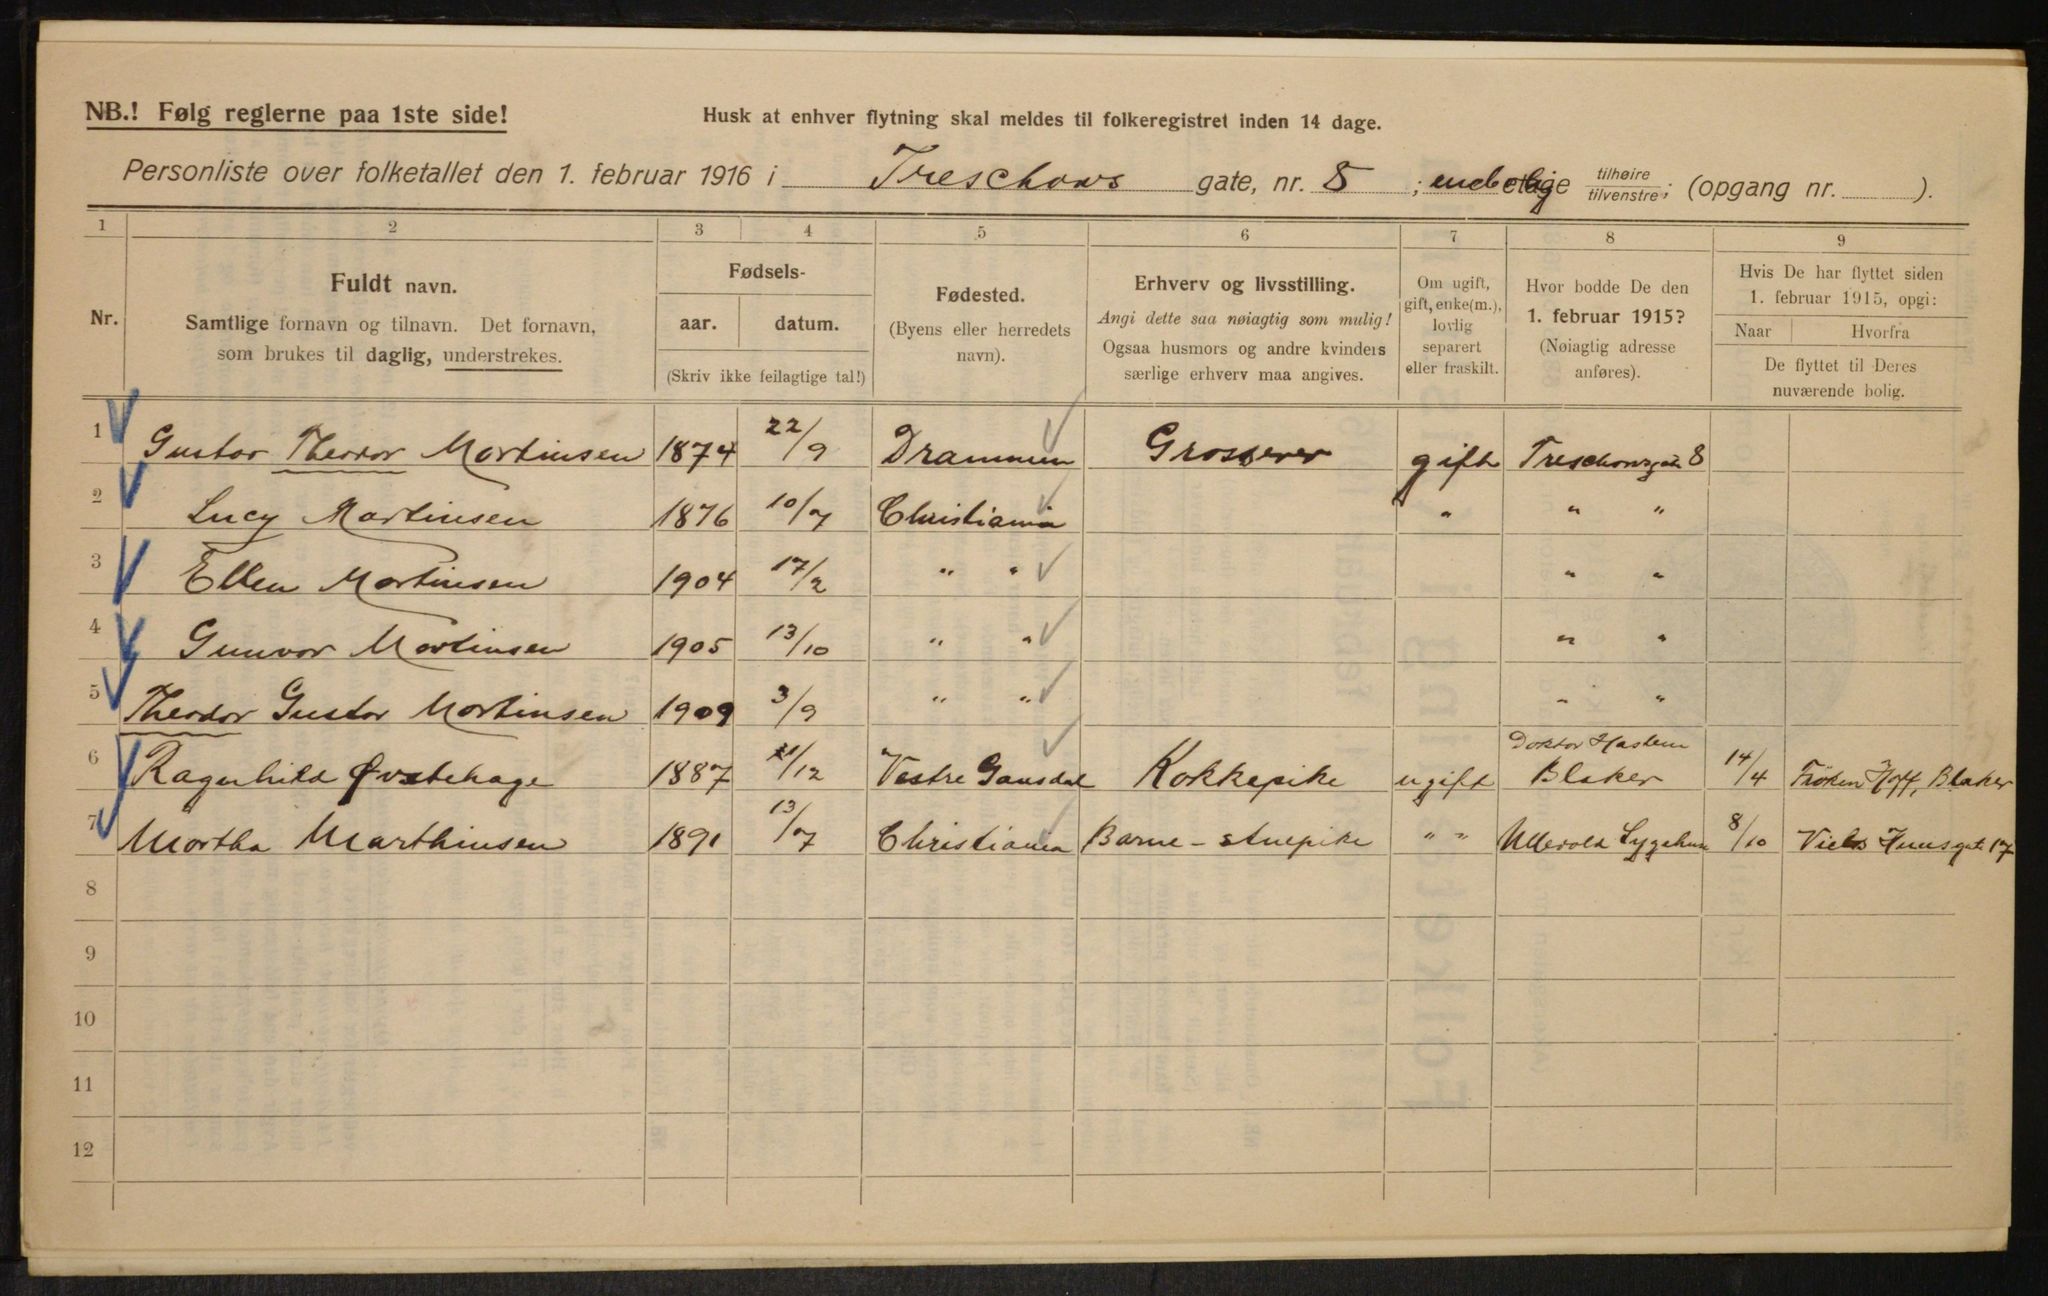 NB.! Følg reglerne paa 1ste side!
Husk at enhver flytning skal meldes til folkeregistret inden 14 dage.
Personliste over folketallet den 1. februar 1916 i Treschows gate, nr. 8 ; enebolig etage tilhøire tilvenstre; (opgang nr. ).
1 2 3 4 5 6 7 8 9
Nr.
Fuldt navn.
Samtlige fornavn og tilnavn. Det fornavn,
som brukes til daglig, understrekes.
Fødsels-
aar. datum.
(Skriv ikke feilagtige tal!)
Fødested.
(Byens eller herredets
navn).
Erhverv og livsstilling.
Angi dette saa nøiagtig som mulig!
Ogsaa husmors og andre kvinders
særlige erhverv maa angives.
Om ugift,
gift, enke(m.),
lovlig
separert
eller fraskilt.
Hvor bodde De den
1. februar 1915?
(Nøiagtig adresse
anføres).
Hvis De har flyttet siden
1. februar 1915, opgi:
Naar Hvorfra
De flyttet til Deres
nuværende bolig.
1 Gustav Theodor Martinsen 1874 22/9 Drammen Grosserer gift Treschowsgate 8
2 Lucy Martinsen 1876 10/7 Christiania " " "
3 Ellen Martinsen 1904 17/2 " " " "
4 Gunvor Martinsen 1905 13/10 " " " "
5 Theodor Gustav Martinsen 1909 3/9 " " " "
6 Ragnhild Øvstehage 1887 /12 Vestre Gausdal Kokkepike ugift Doktor Haslem Blaker 14/4 Frøken Hoff, Blaker
7 Martha Marthinsen 1891 13/7 Christiania Barne-stuepike " " Ullevold Sygehus 8/10 Niels Juulsgt 17
8
9
10
11
12